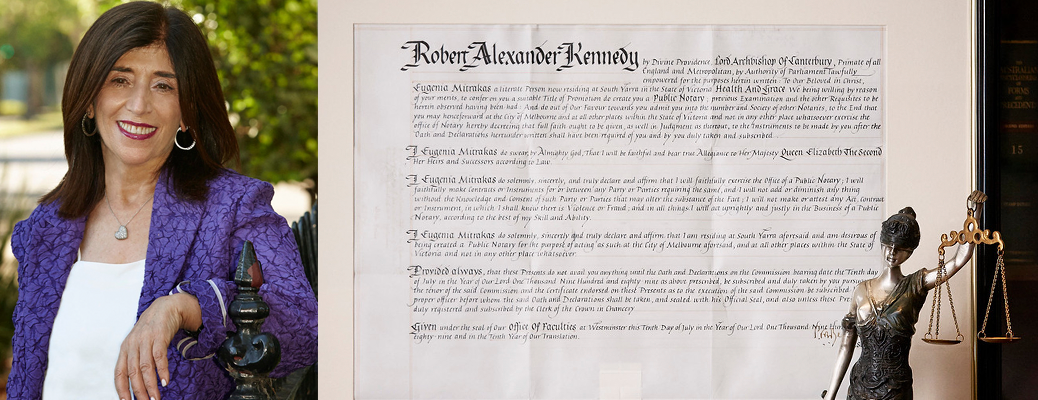 Robert Alexander Kennedy by Divine Providence, Lord Archbishop Of Canterbury, Primate of all
England and Metropolitan, by Authority of Parliament lawfully
empowered for the purposes herein written: To Our Beloved in Christ,
Eugenia Mitrakas a literate Person now residing at South Yarra in the State of Victoria Health And Grace We being willing by reason
of your merits, to confer on you a suitable Title of Promotion do create you a Public Notary; previous Examination and the other Requisites to be
herein observed having been had: And do out of Our Favour towards you admit you into the number and Society of other Notaries, to the End that
you may henceforward at the City of Melbourne and at all other places within the State of Victoria and not in any other place whatsoever exercise the
office of Notary hereby decreeing that full faith ought to be given, as well in Judgment as thereout, to the Instruments to be made by you after the
Oath and Declarations hereunder written shall have been required of you and by you duly taken and subscribed
I Eugenia Mitrakas do swear, by Almighty God, That I will be faithful and bear true Allegiance to Her Majesty Queen Elizabeth The Second
Her Heirs and Successors according to Law.
I Eugenia Mitrakas do solemnly, sincerely, and truly declare and affirm that I will faithfully exercise the Office of a Public Notary; I will
faithfully make Contracts or Instruments for or between any Party or Parties requiring the same, and I will not add or diminish any thing
without the Knowledge and Consent of such Party or Parties that may alter the substance of the Fact; I will not make or attest any Act, Contract
or Instrument, in which I shall know there is Violence or Fraud; and in all things I will act uprightly and justly in the Business of a Public
Notary, according to the best of my Skill and Ability.
I Eugenia Mitrakas do solemnly, sincerely and truly declare and affirm that I am residing at South Yarra aforesaid and am desirous of
being created a Public Notary for the purpose of acting as such at the City of Melbourne aforesaid, and at all other places within the State of
Victoria and not in any other place whatsoever
Provided always, that these Presents do not avail you anything until the Oath and Declarations on the Commission bearing date the Tenth day
of July in the Year of Our Lord One Thousand Nine Hundred and eighty-nine as above prescribed, be subscribed and duly taken by you pursuant
the tenor of the said Commission and the Certificate endorsed on these Presents as to the execution of the said Commission be subscribed
proper officer before whom the said Oath and Declarations shall be taken, and sealed with his Official Seal, and also unless these
duly registered and subscribed by the Clerk of the Crown in Chancery
Given under the seal of Our Office Of Faculties at Westminster this Tenth Day of July in the Year of Our Lord One Thousand Nine
eighty-nine and in the Tenth Year of Our Translation.
AUSTRALIAN
FORMS
AND
PRECEDENTS
15